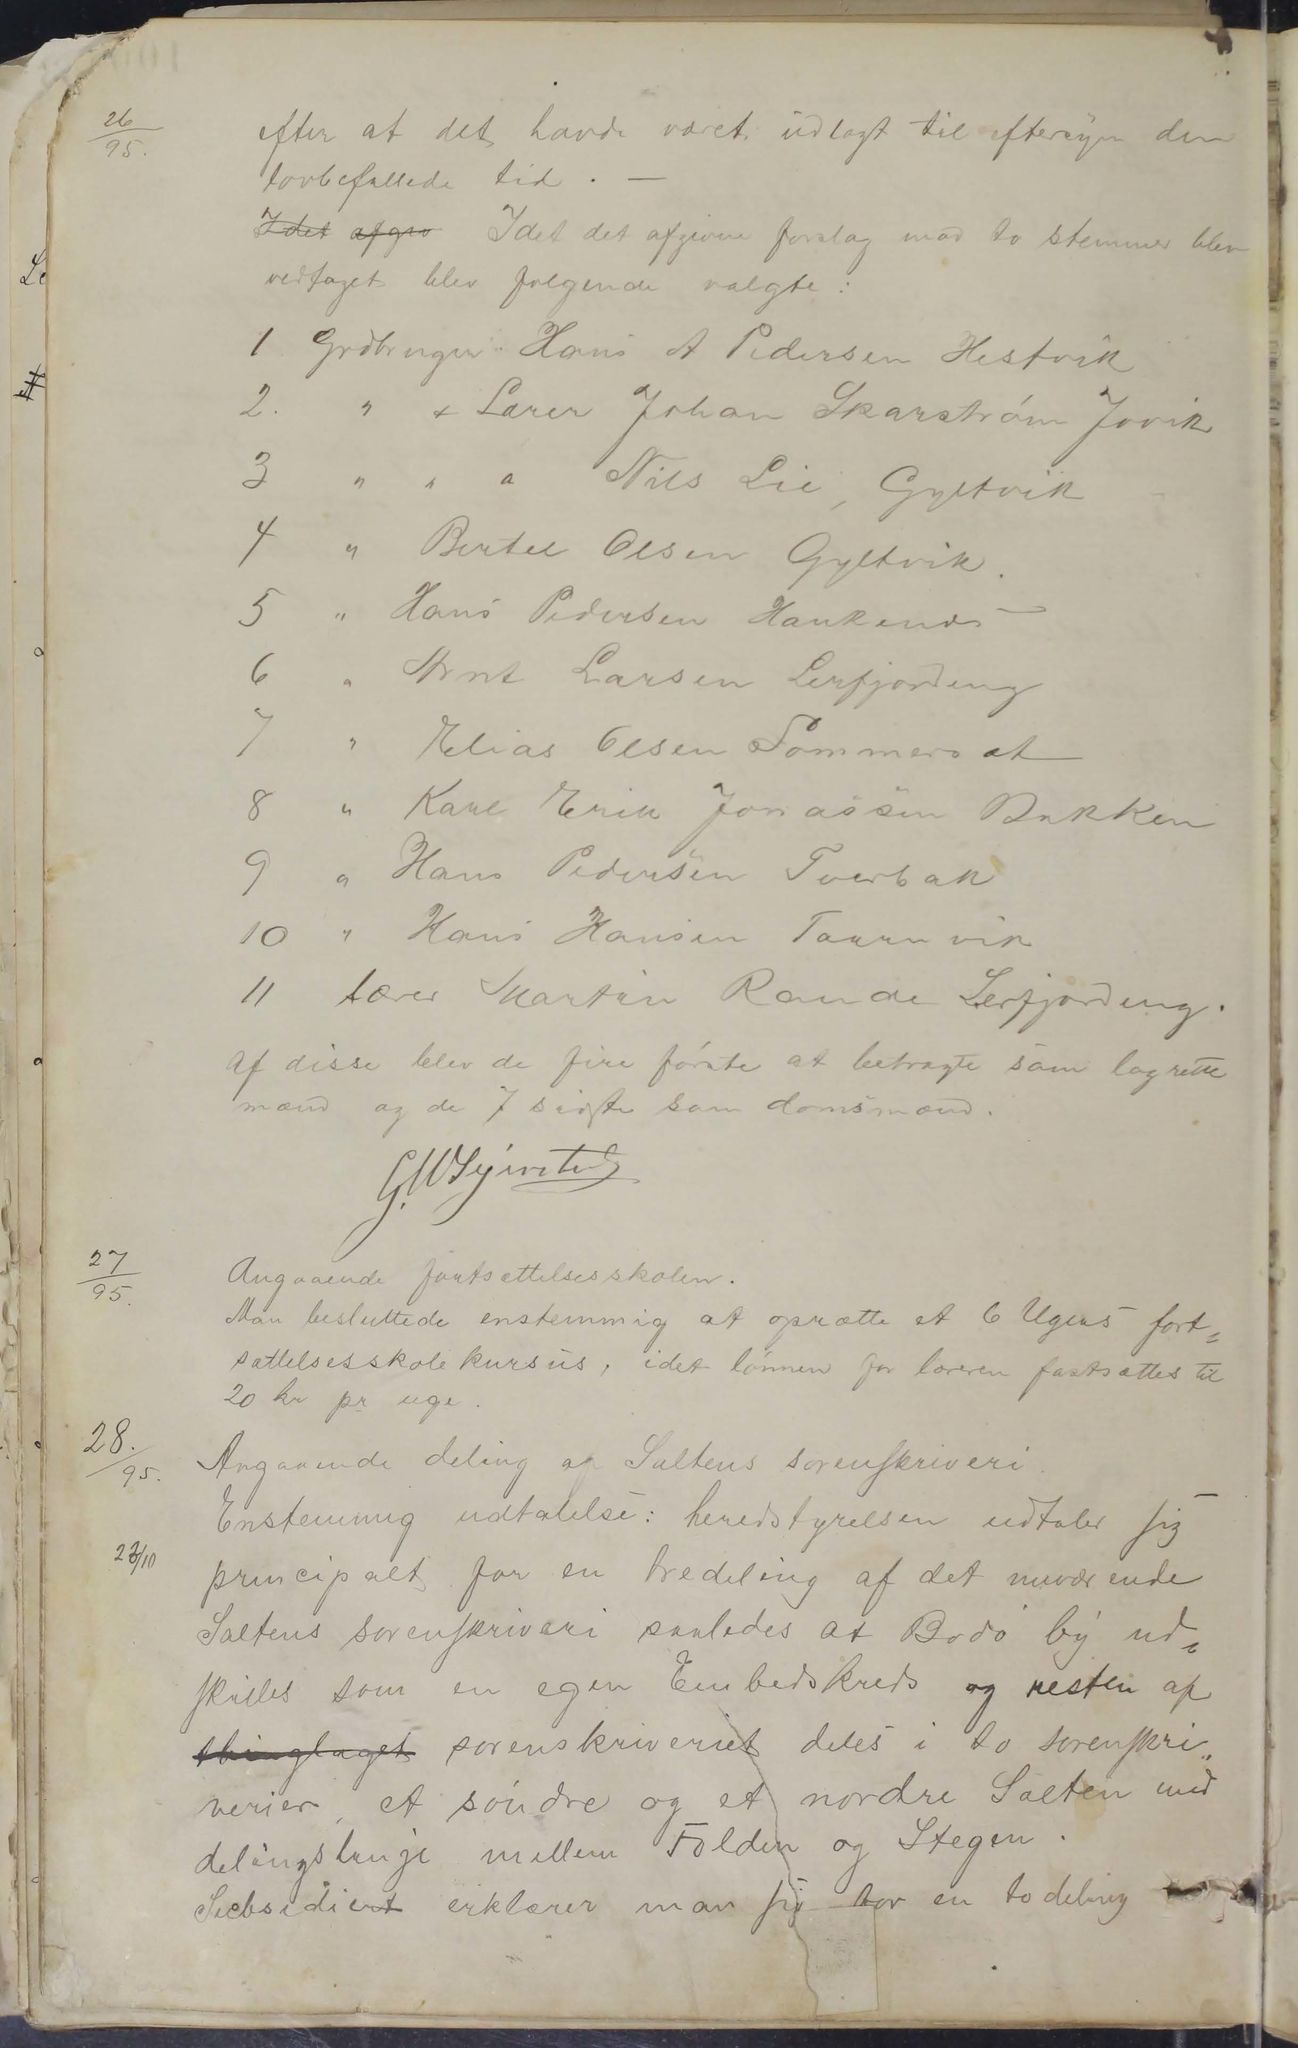 26/95.
efter at det havde været üdlagt til eftersÿn den
lovbefallede tid. —
Idet afgiv Idet det afgivne forslag mod to stemmer blev
vedtaget blev følgende valgte:
1 Grdbruger Hans A Pedersen Hestvik
2. " & Lærer Johan Skarström Jovik
3 " " " Nils Lie, Gyltvik
4 " Bertel Olsen Gyltvik.
5 " Hans Pedersen Haukenæs
6 " Arnt Larsen Lerfjordeng
7 " Elias Olsen Sommerset
8 " Karl Erik Jonassen Bakken
9 " Hans Pedersen Tverbak
10 " Hans Hansen Taarnvik
11 lærer Martin Rande Lerfjordeng.
Af disse blev de fire første at betragte som lagrette
mænd og de 7 sidste som domsmænd.
27/95.
Angaaende fortsættelsesskolen.
Man besluttede enstemmig at oprætte et 6 Ugers fort=
sættelsesskolekursus, idet lønnen for læreren fastsættes til
20 kr pr uge.
28./95.
Angaaende deling af Saltens sorenskriveri.
Enstemmig udtalelse: heredstyrelsen udtaler sig
23/10
principalt for en tredeling af det nuværende
Saltens sorenskriveri saaledes at Bodó bÿ ud=
skilles som en egen Embedskreds og resten af
thinglaget sorenskriveriet deles i to sorenskri=
verier, et søndre og et nordre Salten med
delingslinje mellem Folden og Stegen.
Subsidiert erklærer man sig for en todeling